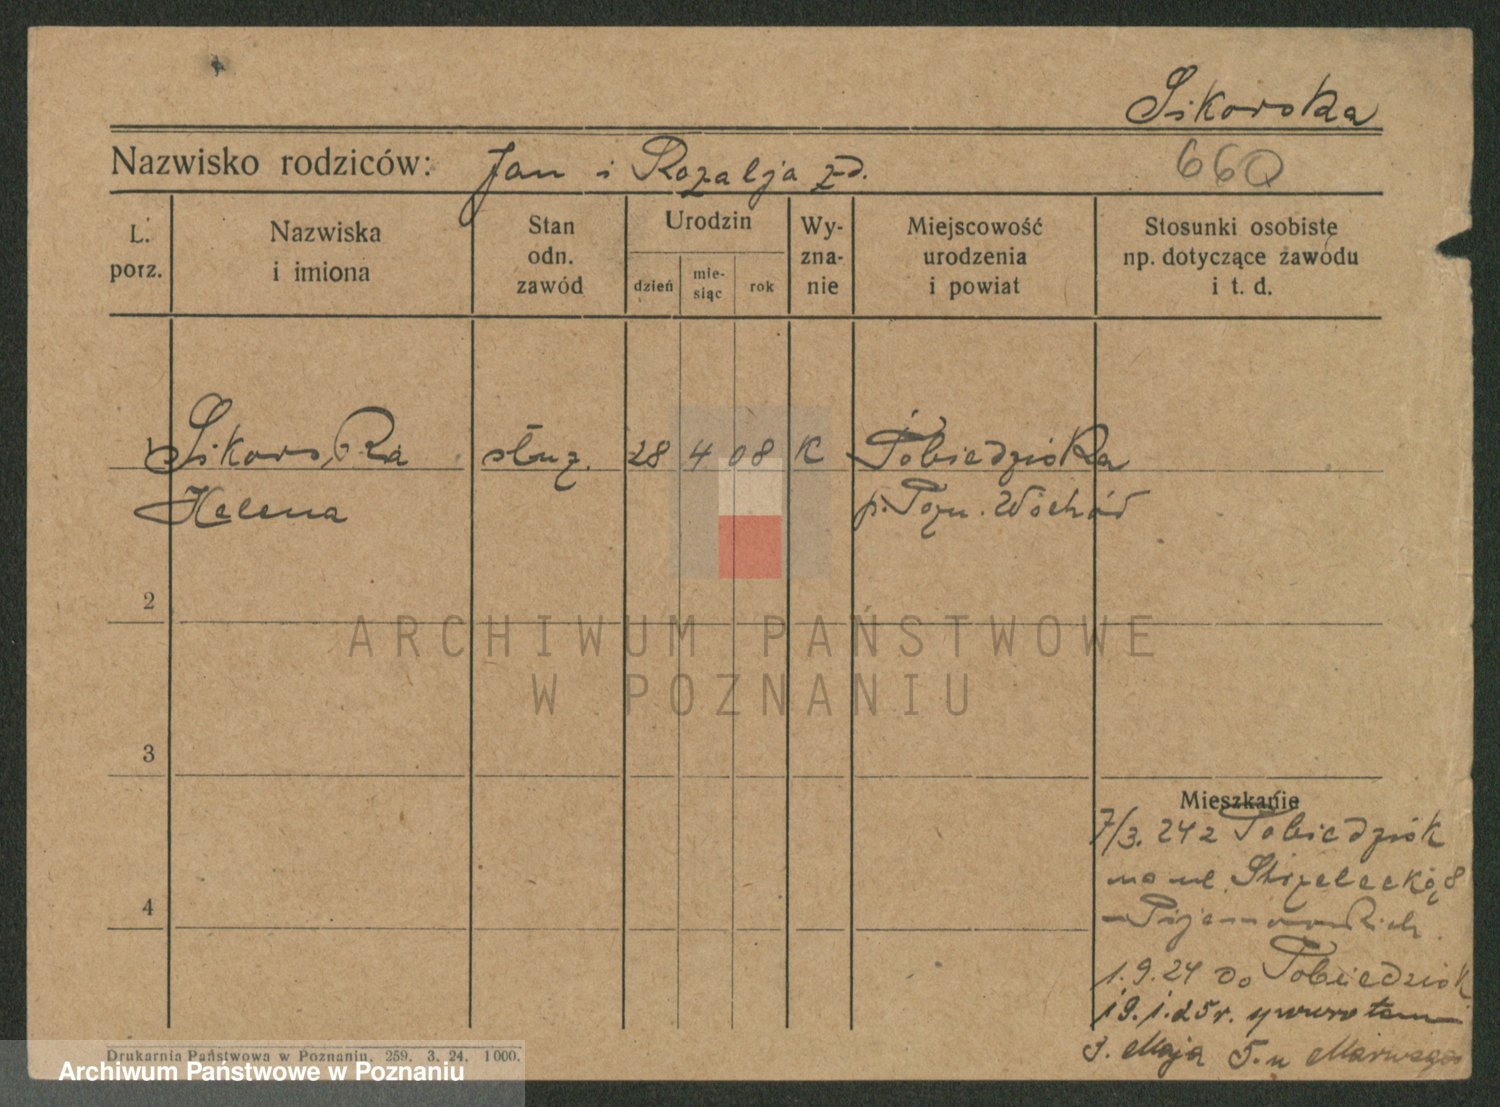 Sikorska
Nazwisko rodziców: Jan i Rozalja zd.
660
L. porz.
Nazwiska i imiona
Stan odn. zawód
Urodzin
dzień
mie-siąc
rok
Wy-zna-nie
Miejscowość urodzenia i powiat
Stosunki osobiste np. dotyczące zawodu i t. d.
1 Sikorska służ. 28 4 08 K Pobiedziska
Helena p. Pozn. Wschód
2
ARCHIWUM PAŃSTWOWE
W POZNANIU
3
Mieszkanie
7/3. 24 z Pobiedzisk
na ul. Strzelecką 8
4
1.9.24 do Pobiedzisk
19.1.25r. spowrotem
3. Maja 5. u
Drukarnia Państwowa w Poznaniu. 259. 3. 24. 1000.
Archiwum Państwowe w Poznaniu